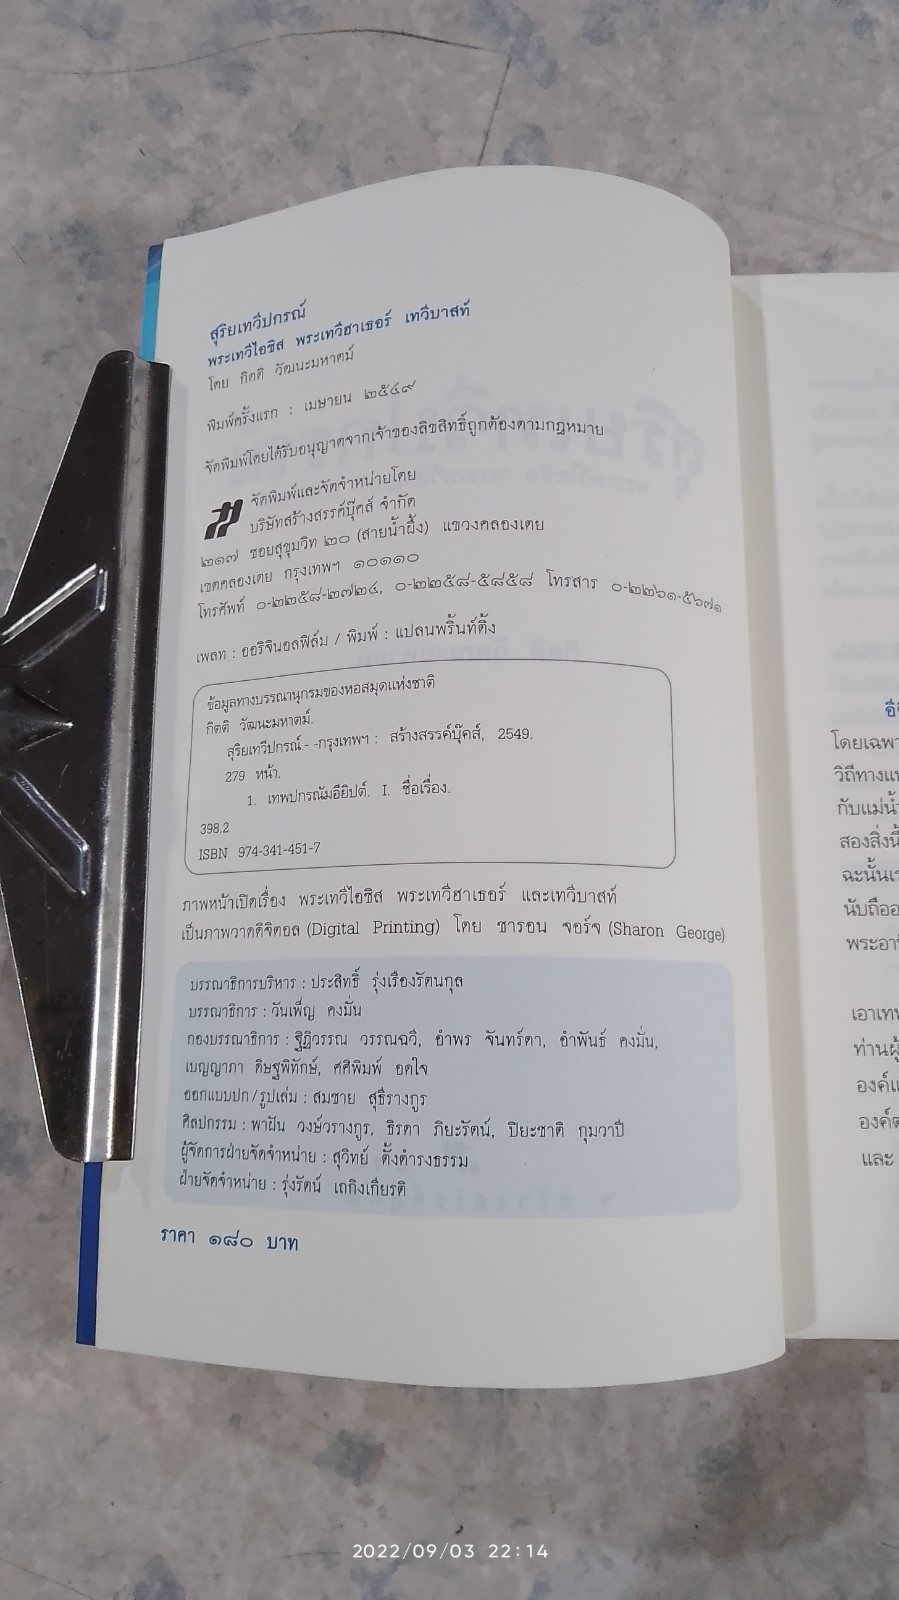 สุริยเทวีปกรณ์
พระเทวีไอซิส พระเทวีฮาเธอร์ เทวีบาสท์
โดย กิตติ วัฒนะมหาตม์
พิมพ์ครั้งแรก : เมษายน ๒๕๔๙
จัดพิมพ์โดยได้รับอนุญาตจากเจ้าของลิขสิทธิ์ถูกต้องตามกฎหมาย
จัดพิมพ์และจัดจำหน่ายโดย
บริษัทสร้างสรรค์บุ๊คส์ จำกัด
๒๑๗ ซอยสุขุมวิท ๒๐ (สายน้ำผึ้ง) แขวงคลองเตย
เขตคลองเตย กรุงเทพฯ ๑๐๑๑๐
โทรศัพท์ ๐-๒๒๕๘-๒๗๒๔, ๐-๒๒๕๘-๕๘๕๘ โทรสาร ๐-๒๒๖๑-๕๖๗๑
เพลท : ออริจินอลฟิล์ม / พิมพ์ : แปลนพริ้นท์ติ้ง
ข้อมูลทางบรรณานุกรมของหอสมุดแห่งชาติ
กิตติ วัฒนะมหาตม์.
สุริยเทวีปกรณ์.- -กรุงเทพฯ : สร้างสรรค์บุ๊คส์, 2549.
279 หน้า.
1. เทพปกรณัมอียิปต์. I. ชื่อเรื่อง.
398.2
ISBN 974-341-451-7
ภาพหน้าเปิดเรื่อง พระเทวีไอซิส พระเทวีฮาเธอร์ และเทวีบาสท์
เป็นภาพวาดดิจิตอล (Digital Printing) โดย ชารอน จอร์จ (Sharon George)
บรรณาธิการบริหาร : ประสิทธิ์ รุ่งเรืองรัตนกุล
บรรณาธิการ : วันเพ็ญ คงมั่น
กองบรรณาธิการ : ฐิฏิวรรณ วรรณฉวี, อำพร จันทร์ดา, อำพันธ์ คงมั่น,
เบญญาภา ดิษฐพิทักษ์, ศศิพิมพ์ อดใจ
ออกแบบปก/รูปเล่ม : สมชาย สุธีรางกูร
ศิลปกรรม : พาฝัน วงษ์วรางกูร, ธิรดา ภิยะรัตน์, ปิยะชาติ กุมวาปี
ผู้จัดการฝ่ายจัดจำหน่าย : สุวิทย์ ตั้งดำรงธรรม
ฝ่ายจัดจำหน่าย : รุ่งรัตน์ เถกิงเกียรติ
ราคา ๑๘๐ บาท
โดยเฉพา
วิถีทางแห
กับแม่น้ำ
สองสิ่งนี้
ฉะนั้นเร
นับถืออ
พระอาทิ
เอาเทพ
ท่านผู้
องค์เ
องค์ต
และ
2022/09/03 22:14